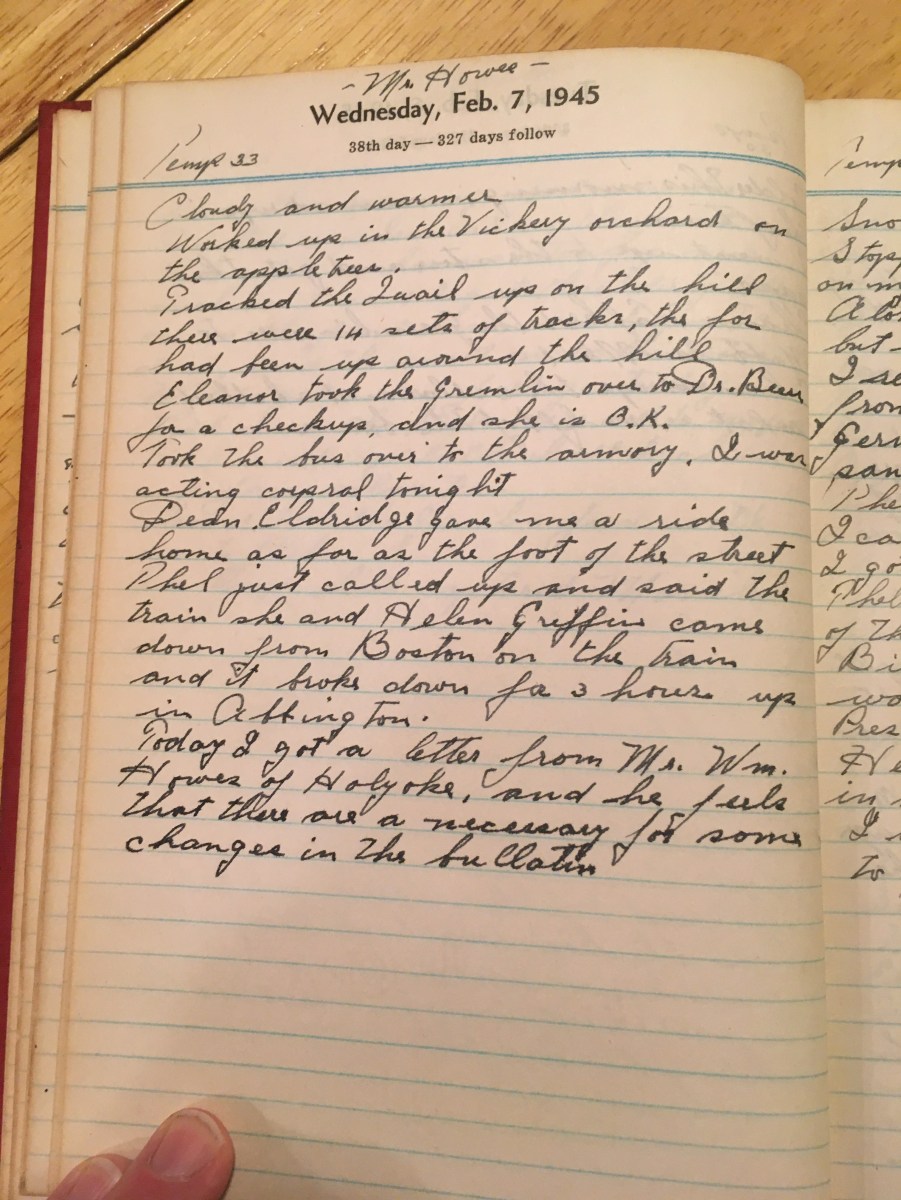 - Mr. Howes -
Wednesday, Feb. 7, 1945
38th day — 327 days follow
Temp 33
Cloudy and warmer
Worked up in the Vickery orchard on
the appletrees.
Tracked the Quail up on the hill
there were 14 sets of tracks, the fox
had been up around the hill
Eleanor took the Gremlin over to Dr.
for a checkup, and she is O.K.
Took the bus over to the armory. I was
acting corpral tonight
Dean Eldridge gave me a ride
home as far as the foot of the street
Phel just called up and said the
train she and Helen Griffin came
down from Boston on the train
and it broke down for 3 hours up
in Abbington.
Today I got a letter from Mr. Wm.
Howes of Holyoke, and he feels
that there are a necessary for some
changes in the bullatin
Temp
Sno
Stop
on m
A lo
but
I se
from
Ger
san
Phe
I ca
I go
Phel
of th
Bi
wa
Pres
He
in
I
to